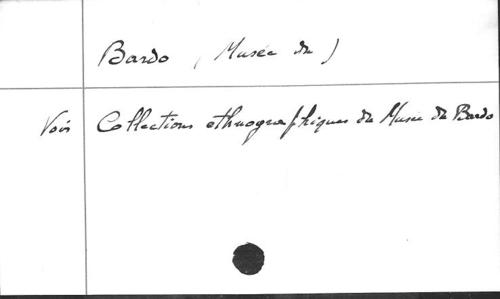 Bardo (Musée du)
Voir Collections ethnographiques du Musée du Bardo